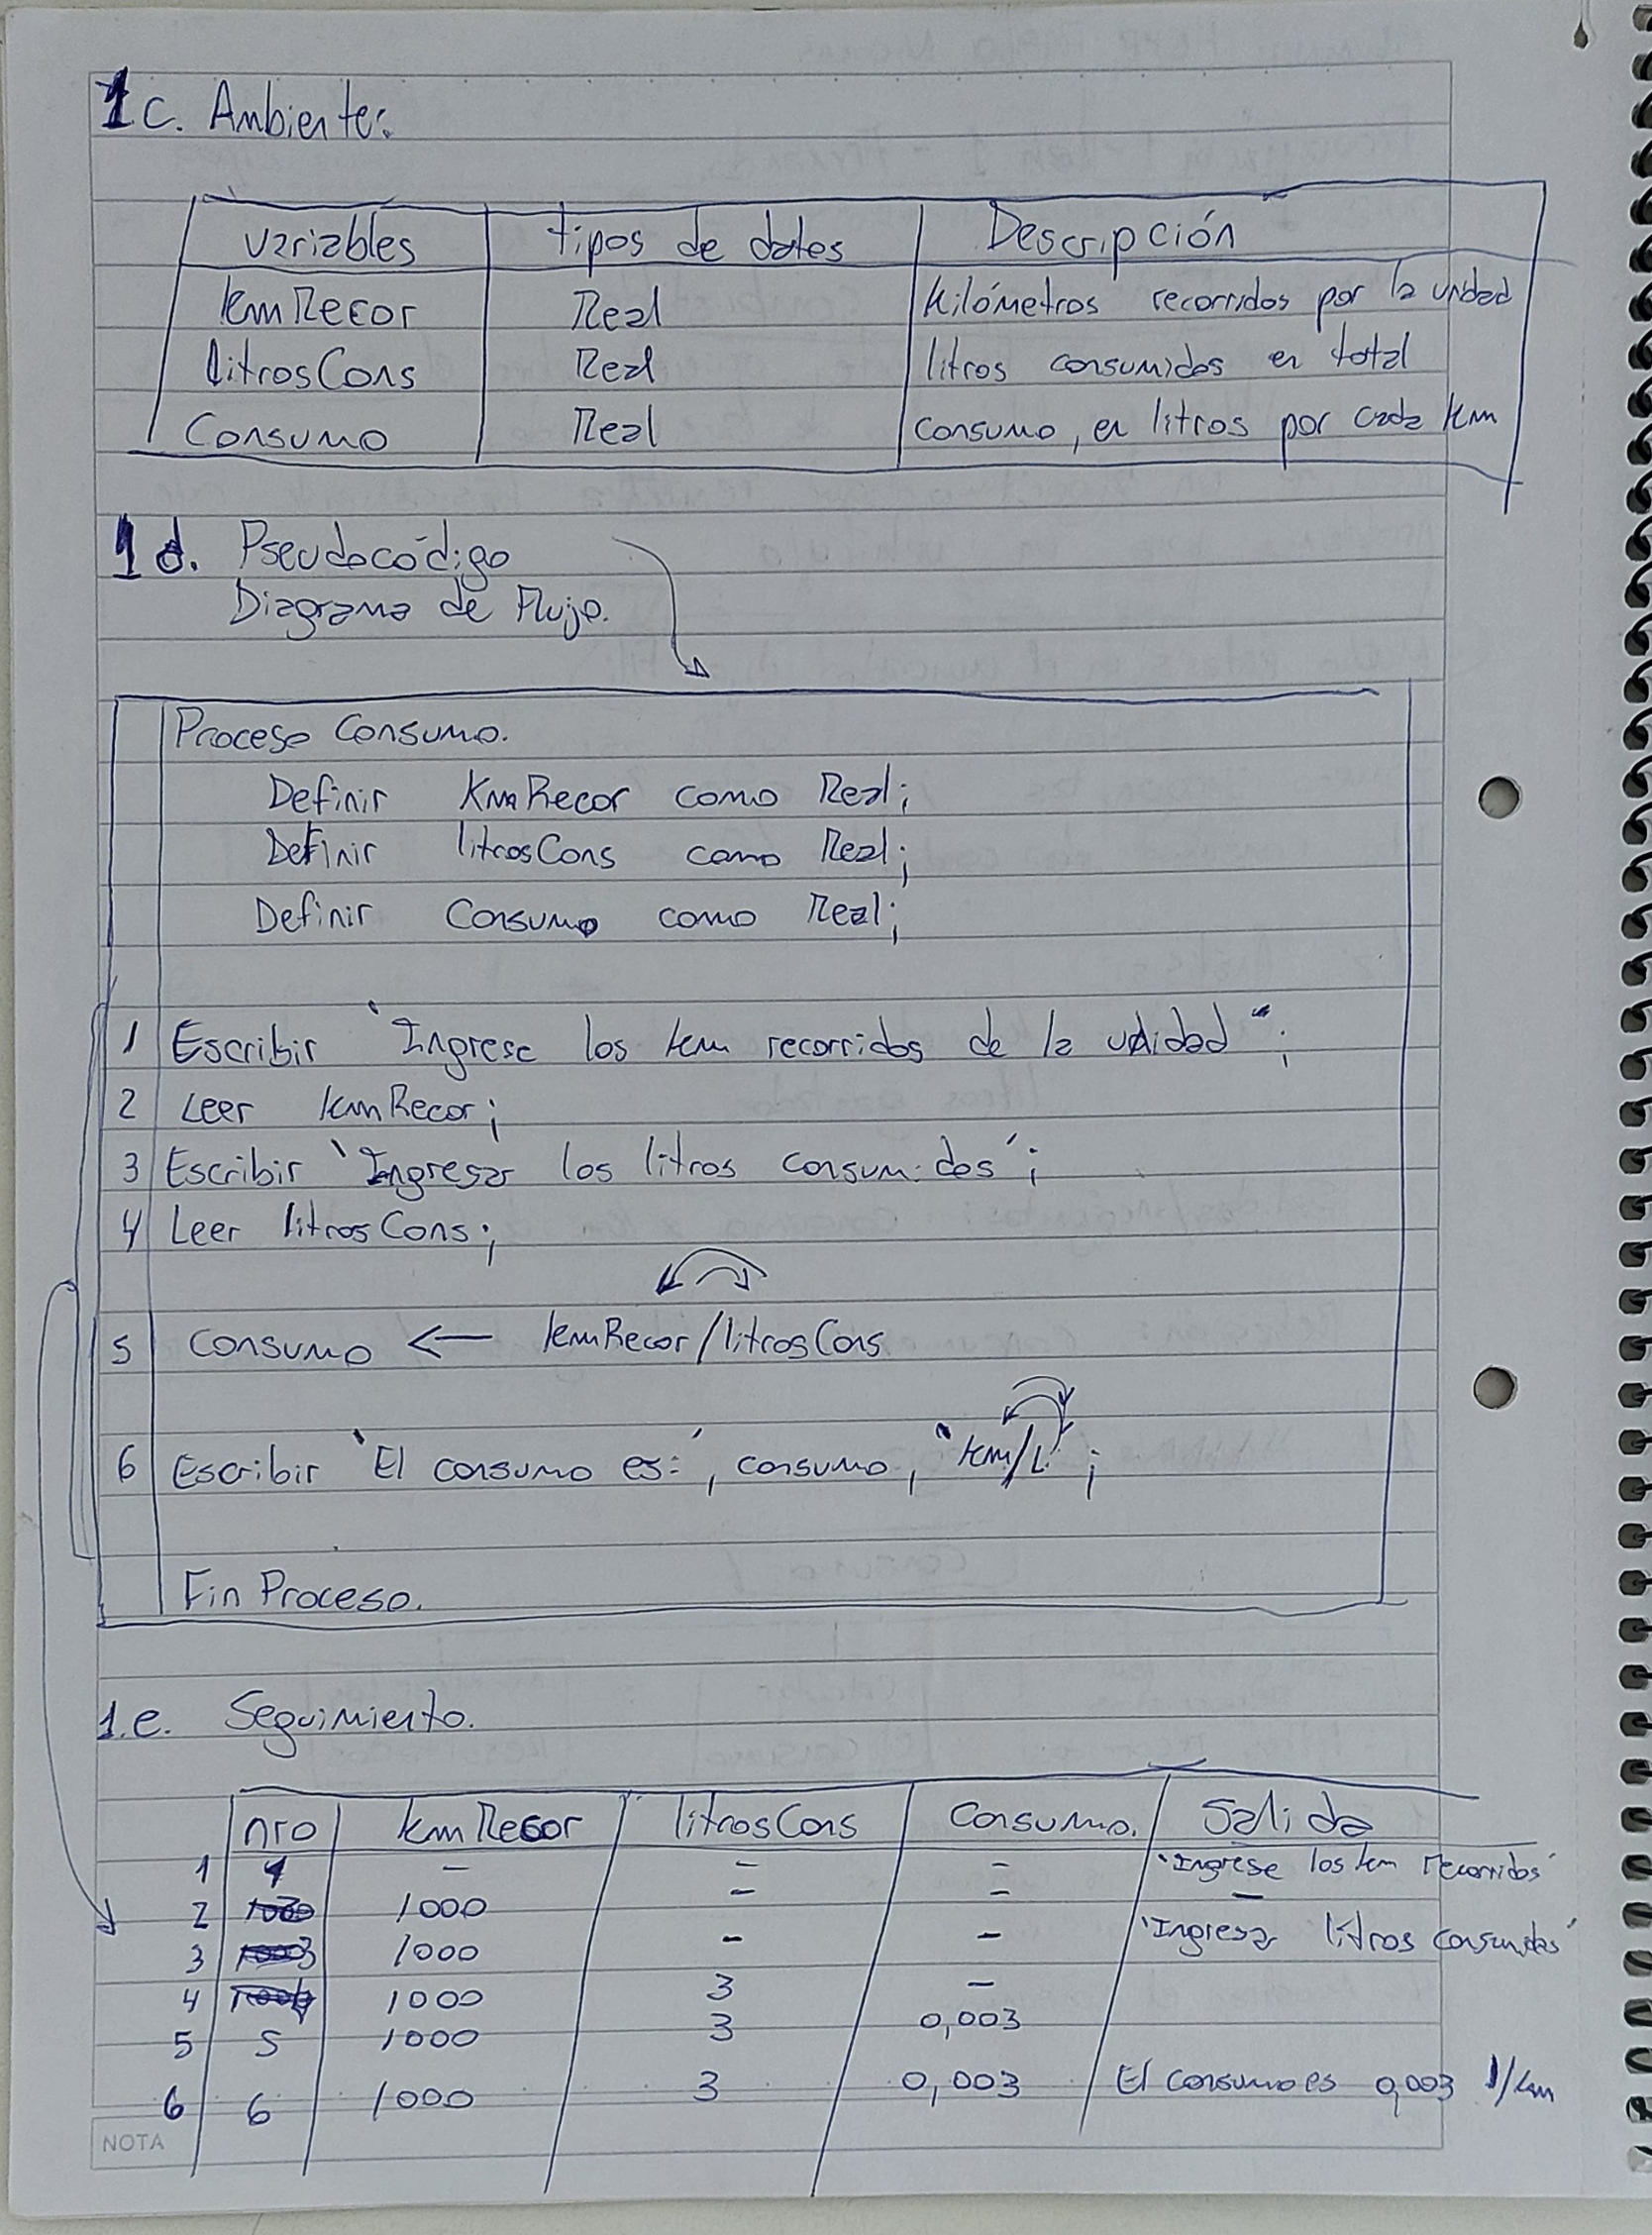 1c. Ambiente:
variables tipos de datos Descripción
kmRecor Real Kilómetros recorridos por la unidad
litrosCons Real litros consumidos en total
Consumo Real consumo, en litros por cada km
1d. Pseudocódigo
Diagrama de Flujo.
Proceso Consumo.
Definir KmRecor como Real;
Definir litrosCons como Real;
Definir Consumo como Real;
1 Escribir "Ingrese los km recorridos de la unidad";
2 Leer kmRecor;
3 Escribir 'Ingresar los litros consumidos';
4 Leer litrosCons;
5 consumo ← kmRecor/litrosCons
6 Escribir 'El consumo es:', consumo, "km/L";
Fin Proceso.
1.e. Seguimiento.
nro kmRecor litrosCons Consumo. Salida
1 1 - - - 'Ingrese los km recorridos'
2 1000 - - -
3 1000 - - 'Ingresa litros consumidos'
4 1000 3 -
5 5 1000 3 0,003
6 6 1000 3 0,003 El consumo es 0,003 l/km
NOTA